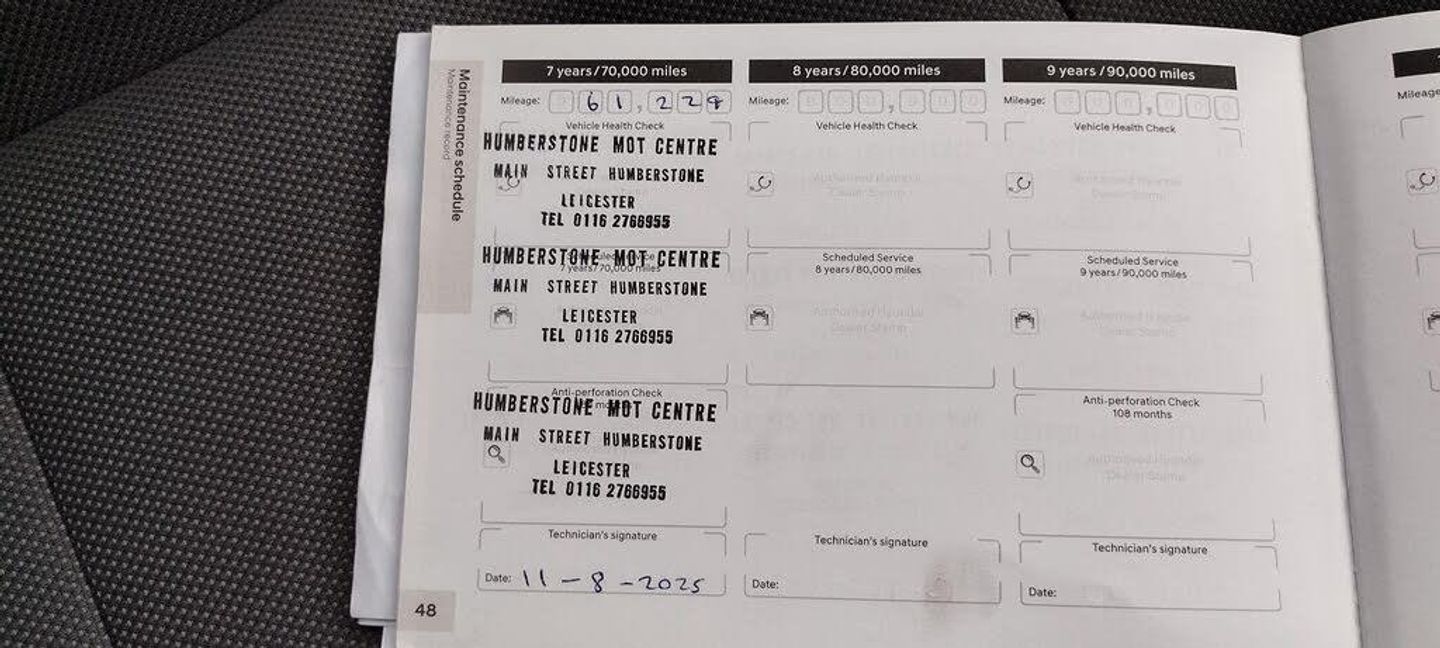 Maintenance schedule
Maintenance record
7 years/70,000 miles
Mileage: 61,229
Vehicle Health Check
HUMBERSTONE MOT CENTRE
MAIN STREET HUMBERSTONE
LEICESTER
TEL 0116 2766955
HUMBERSTONE MOT CENTRE
7 years/70,000 miles
MAIN STREET HUMBERSTONE
LEICESTER
TEL 0116 2766955
Anti-perforation Check
HUMBERSTONE MOT CENTRE
MAIN STREET HUMBERSTONE
LEICESTER
TEL 0116 2766955
Technician's signature
Date: 11-8-2025
48
8 years/80,000 miles
Mileage:
Vehicle Health Check
Authorised Hyundai
Dealer Stamp
Scheduled Service
8 years/80,000 miles
Authorised Hyundai
Dealer Stamp
Technician's signature
Date:
9 years/90,000 miles
Mileage:
Vehicle Health Check
Authorised Hyundai
Dealer Stamp
Scheduled Service
9 years/90,000 miles
Authorised Hyundai
Dealer Stamp
Anti-perforation Check
108 months
Authorised Hyundai
Dealer Stamp
Technician's signature
Date:
Mileage